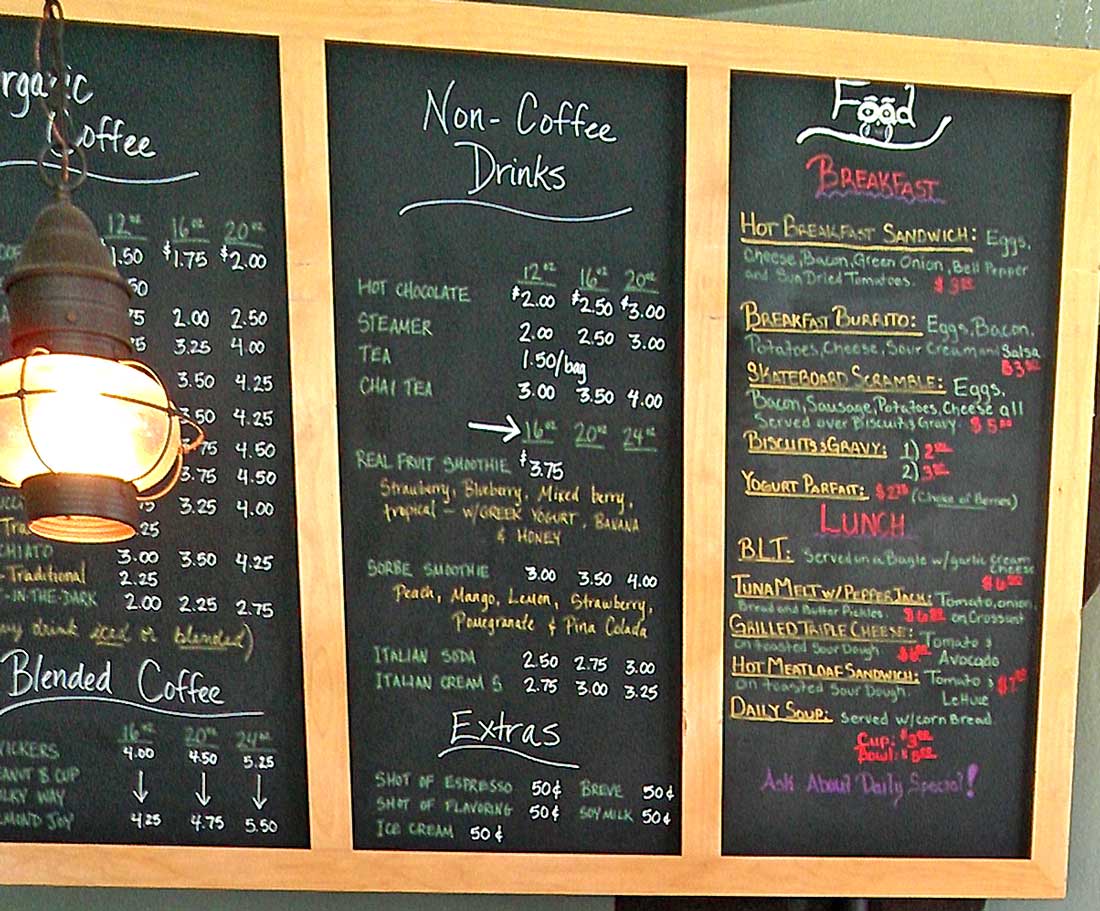 rganic
Coffee
12oz 16oz 20oz
1.50 $1.75 $2.00
50
75 2.00 2.50
3.25 4.00
3.50 4.25
3.50 4.25
3.75 4.50
3.75 4.50
3.25 4.00
.25
CHIATO 3.00 3.50 4.25
-Traditional 2.25
-IN-THE-DARK 2.00 2.25 2.75
ny drink iced or blended)
Blended Coffee
16oz 20oz 24oz
ICKERS 4.00 4.50 5.25
EANUT B CUP
LKY WAY
LMOND JOY 4.25 4.75 5.50
Non-Coffee
Drinks
12oz 16oz 20oz
HOT CHOCOLATE $2.00 $2.50 $3.00
STEAMER 2.00 2.50 3.00
TEA 1.50/bag
CHAI TEA 3.00 3.50 4.00
16oz 20oz 24oz
REAL FRUIT SMOOTHIE $3.75
Strawberry, Blueberry, Mixed berry,
tropical - w/GREEK YOGURT, BANANA
& HONEY
SORBE SMOOTHIE 3.00 3.50 4.00
Peach, Mango, Lemon, Strawberry,
Pomegranate & Pina Colada
ITALIAN SODA 2.50 2.75 3.00
ITALIAN CREAM S 2.75 3.00 3.25
Extras
SHOT OF ESPRESSO 50¢ BREVE 50¢
SHOT OF FLAVORING 50¢ SOY MILK 50¢
ICE CREAM 50¢
Food
BREAKFAST
HOT BREAKFAST SANDWICH: Eggs,
Cheese, Bacon, Green Onion, Bell Pepper
and Sun Dried Tomatoes.
BREAKFAST BURRITO: Eggs, Bacon,
Potatoes, Cheese, Sour Cream and Salsa
SKATEBOARD SCRAMBLE: Eggs,
Bacon, Sausage, Potatoes, Cheese all
Served over Biscuits & Gravy. $5.00
BISCUITS & GRAVY: 1)
2)
YOGURT PARFAIT: (Choice of Berries)
LUNCH
BLT: Served on a Bagle w/garlic cream
cheese
TUNA MELT W/ PEPPER JACK: Tomato, onion,
Bread and Butter Pickles. on Crossant
GRILLED TRIPLE CHEESE: Tomato &
on toasted Sour Dough Avocado
HOT MEATLOAF SANDWICH: Tomato &
on toasted Sour Dough. Lettuce
DAILY SOUP: Served w/corn Bread.
Cup:
Bowl:
Ask About Daily Special!